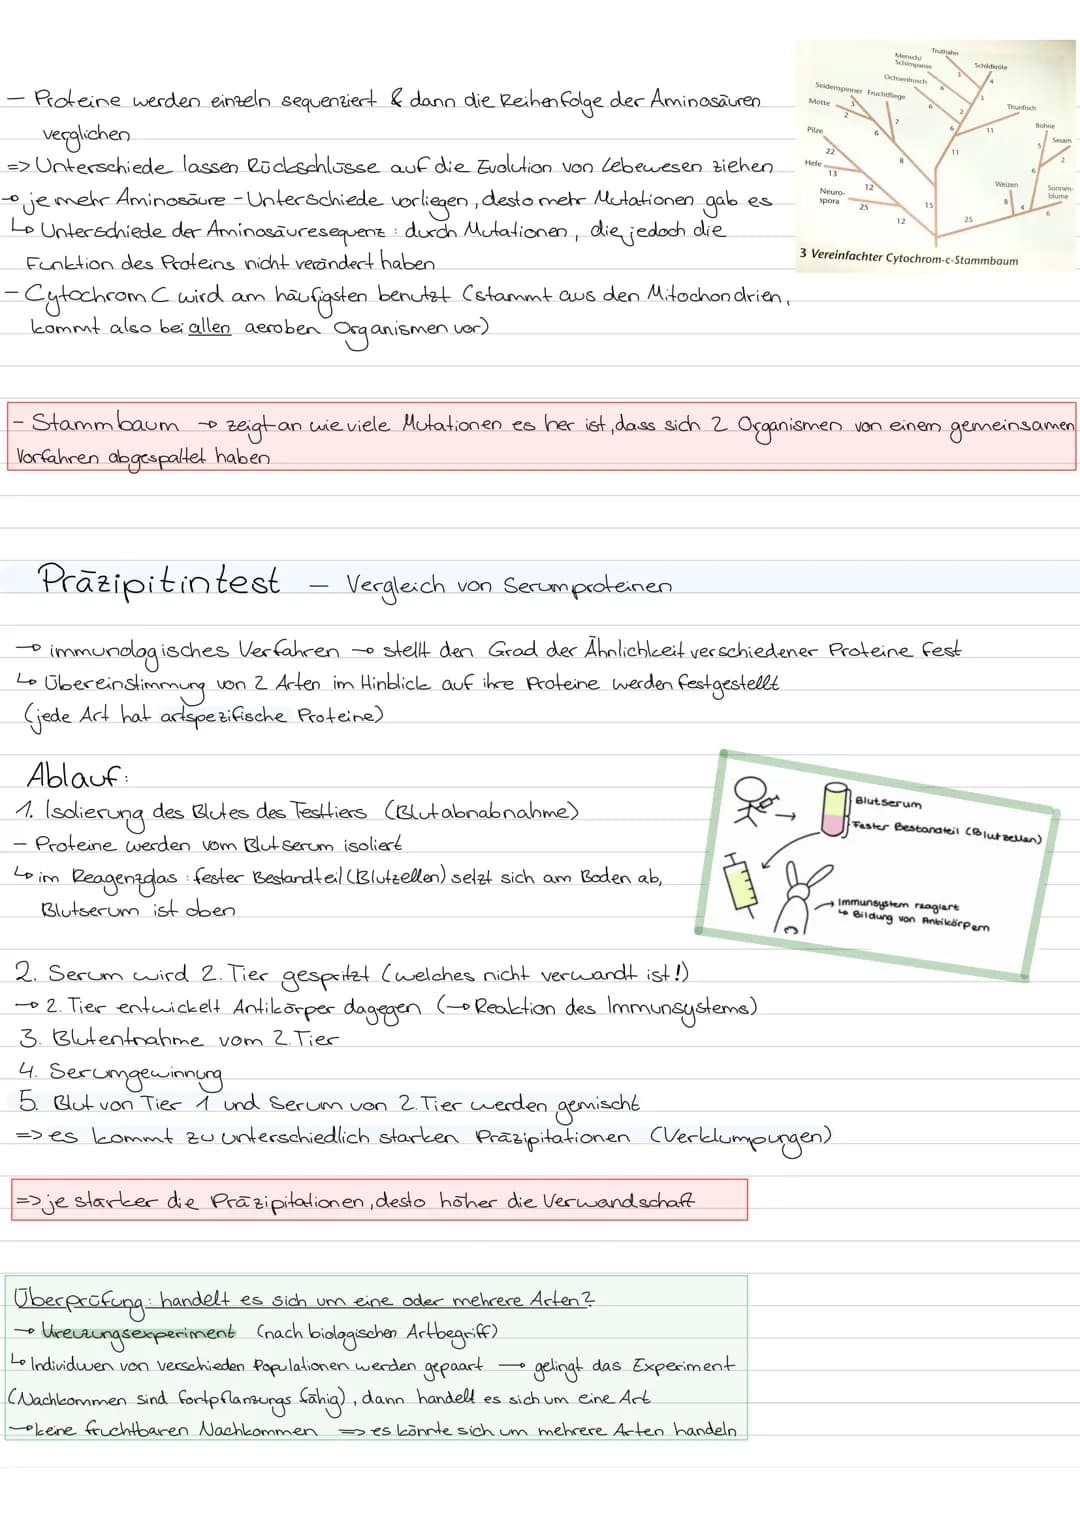 - Proteine werden einzeln sequenziert & dann die Reihenfolge der Aminosäuren
verglichen
=> Unterschiede lassen Rückschlüsse auf die Evolution von Lebewesen ziehen
→ je mehr Aminosäure-Unterschiede vorliegen, desto mehr Mutationen gab es
↳ Unterschiede der Aminosäuresequenz: durch Mutationen, die jedoch die
Funktion des Proteins nicht verändert haben
- Cytochrom C wird am häufigsten benutzt (stammt aus den Mitochondrien,
kommt also bei allen aeroben Organismen vor)
Truthahn
Mensch/
Schimpanse
Schildkröte
Ochsenfrosch
Seidenspinner Fruchtfliege
Motte
Thunfisch
Pilze
Bohne
Sesam
Hefe
Weizen
Neuro-
spora
Sonnen-
blume
3 3 4 2 6 6 3
2 6 7 2 6 11
22 8 11 5 2
13 12 6
25 15 8 4 6
12 25
3 Vereinfachter Cytochrom-c-Stammbaum
- Stammbaum → zeigt an wie viele Mutationen es her ist, dass sich 2 Organismen von einem gemeinsamen
Vorfahren abgespaltet haben
Präzipitintest - Vergleich von Serumproteinen
→ immunologisches Verfahren → stellt den Grad der Ähnlichkeit verschiedener Proteine fest
↳ Übereinstimmung von 2 Arten im Hinblick auf ihre Proteine werden festgestellt
(jede Art hat artspezifische Proteine)
Ablauf:
1. Isolierung des Blutes des Testtiers (Blutabnabnahme)
- Proteine werden vom Blutserum isoliert
↳ im Reagenzglas: fester Bestandteil (Blutzellen) setzt sich am Boden ab,
Blutserum ist oben
Blutserum
Fester Bestandteil (Blutzellen)
→ Immunsystem reagiert
↳ Bildung von Antikörpern
2. Serum wird 2. Tier gespritzt (welches nicht verwandt ist!)
→ 2. Tier entwickelt Antikörper dagegen (→ Reaktion des Immunsystems)
3. Blutentnahme vom 2. Tier
4. Serumgewinnung
5. Blut von Tier 1 und Serum von 2. Tier werden gemischt
=> es kommt zu unterschiedlich starken Präzipitationen (Verklumpungen)
=> je stärker die Präzipitationen, desto höher die Verwandschaft
Überprüfung: handelt es sich um eine oder mehrere Arten?
→ Kreuzungsexperiment (nach biologischen Artbegriff)
↳ Individuen von verschieden Populationen werden gepaart → gelingt das Experiment
(Nachkommen sind fortpflanzungs fähig), dann handelt es sich um eine Art
→ keine fruchtbaren Nachkommen => es könnte sich um mehrere Arten handeln